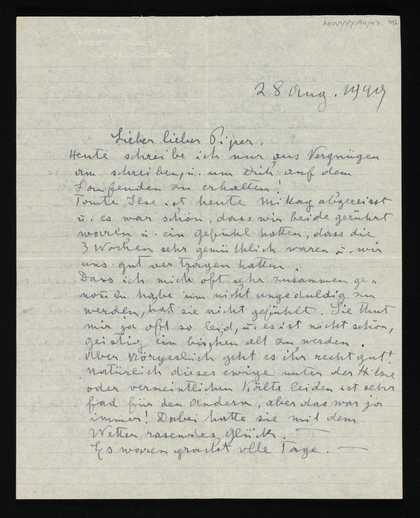 28 Aug. 1949
Lieber lieber Piper.
Heute schreibe ich nur aus Vergnügen
am schreiben, u. um Dich auf dem
Laufenden zu erhalten!
Tante Ilse ist heute Mittag abgereisst
u. es war schön, dass wir beide gerührt
waren u. ein gefühl hatten, dass die
3 Wochen sehr gemütlich waren u. wir
uns gut vertragen hatten.
Dass ich mich oft sehr zusammen ge-
nommen habe um nicht ungeduldig zu
werden, hat sie nicht gefühlt. Sie thut
mir ja oft so leid, u. es ist nicht schön,
geistig ein bischen alt zu werden.
Aber körperlich geht es ihr recht gut!
Natürlich dieses ewige unter der Hitze
oder vermeintlichen Kälte leiden ist sehr
fad für den Andern, aber das war ja
immer! Dabei hatte sie mit dem
Wetter rasendes Glück. —
Es waren pracht volle Tage. —